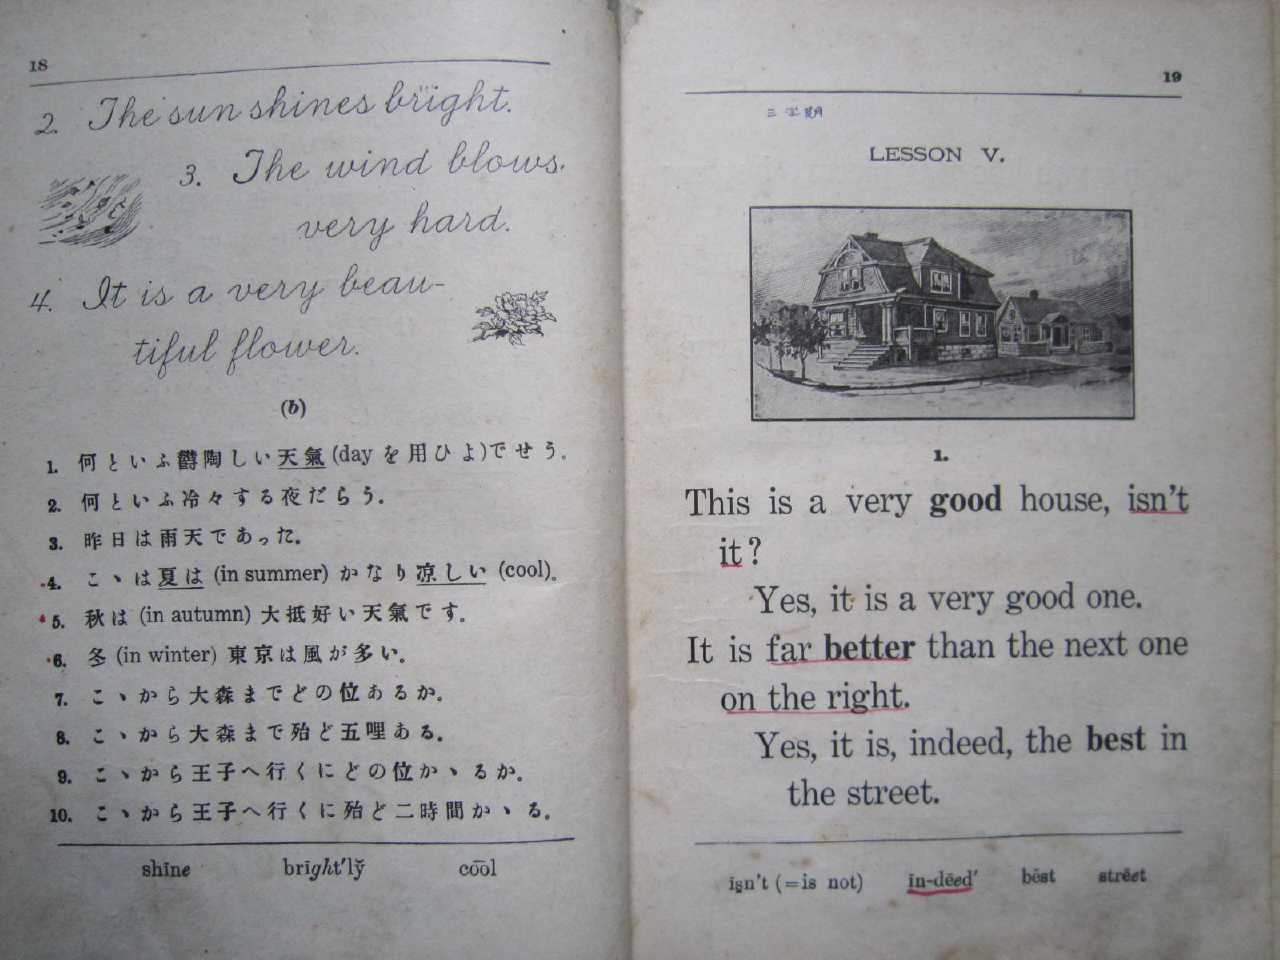 18
2. The sun shines bright.
3. The wind blows
very hard.
4. It is a very beau-
tiful flower.
(b)
1. 何といふ鬱陶しい天氣 (day を用ひよ)でせう。
2. 何といふ冷々する夜だらう。
3. 昨日は雨天であった。
4. こゝは夏は (in summer) かなり凉しい (cool)。
5. 秋は (in autumn) 大抵好い天氣です。
6. 冬 (in winter) 東京は風が多い。
7. こゝから大森までどの位あるか。
8. こゝから大森まで殆ど五哩ある。
9. こゝから王子へ行くにどの位かゝるか。
10. こゝから王子へ行くに殆ど二時間かゝる。
shīne brīght′lў co͞ol
19
三学期
LESSON V.
1.
This is a very good house, isn't
it?
Yes, it is a very good one.
It is far better than the next one
on the right.
Yes, it is, indeed, the best in
the street.
ĭsn't (=is not) ĭn-dēed′ bĕst strēet